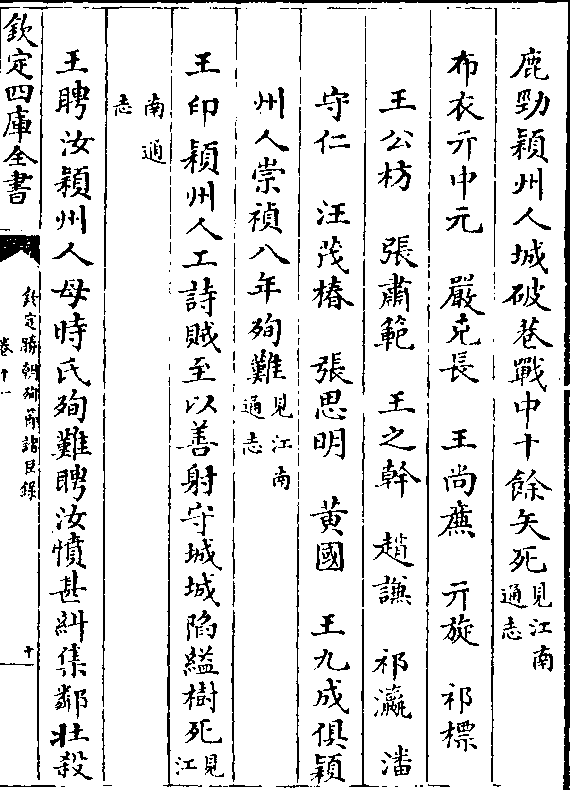 鹿勁潁州人城破巷戰中十餘矢死見江南通志
布衣亓中元　嚴克長　王尚廌　亓旋　祁標
王公枋　張肅範　王之幹　趙謙　祁瀛　潘
守仁　汪茂椿　張思明　黄國　王九成俱潁
州人崇禎八年殉難見江南通志
王印潁州人工詩賊至以善射守城城陷縊樹死見江
南通志
王聘汝潁州人母時氏殉難聘汝憤甚糾集鄰壯殺
欽定四庫全書
欽定勝朝殉節諸臣錄
卷十一
十